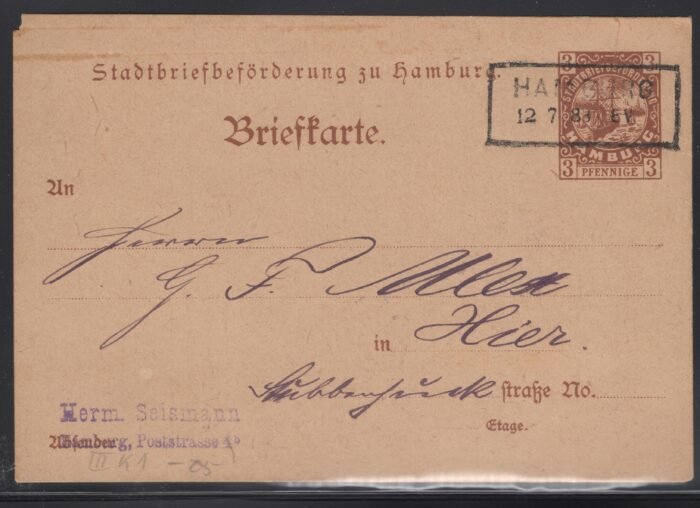 Stadtbriefbeförderung zu Hamburg.
3 3
STADTBRIEFBEFÖRDERUNG
HAMBURG
3 PFENNIGE 3
HAMBURG
12 7 88 EV
Briefkarte.
An
Herrn
G. F. Ulex
in Hier.
Stubbenhuck straße No.
Etage.
Herm. Seismann
Hamburg, Poststrasse
Absender
II K 1